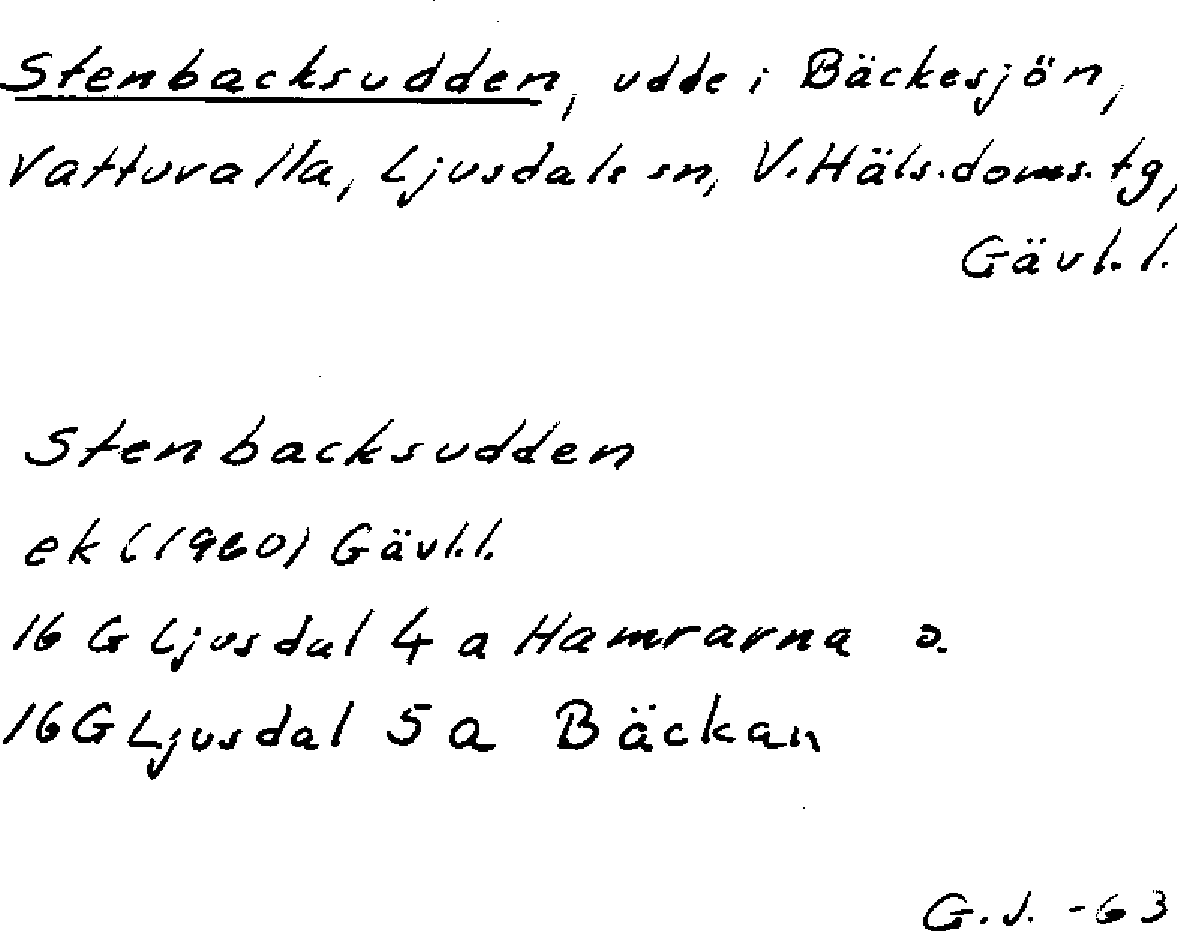 Stenbacksudden, udde i Bäckesjön,
Vatturalla, Ljusdals sn, V. Häls. doms. tg,
Gävl. l.
Stenbacksudden
ek (1960) Gävl. l.
16 G Ljusdal 4 a Hamrarna o.
16 G Ljusdal 5 a Bäckan
G. J. -63